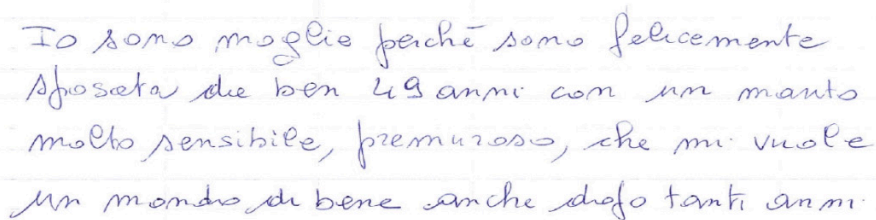 Io sono moglie perché sono felicemente
sposata da ben 49 anni con un marito
molto sensibile, premuroso, che mi vuole
un mondo di bene anche dopo tanti anni.